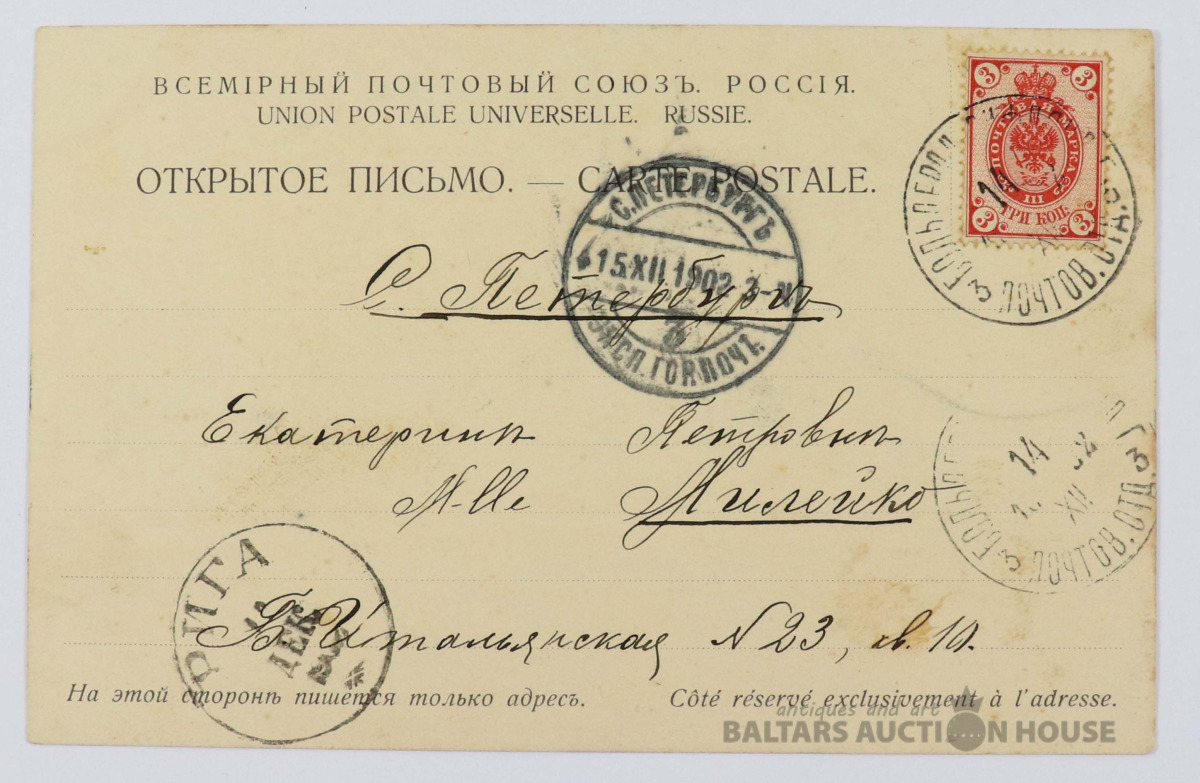 ВСЕМІРНЫЙ ПОЧТОВЫЙ СОЮЗЪ. РОССІЯ.
UNION POSTALE UNIVERSELLE. RUSSIE.
ОТКРЫТОЕ ПИСЬМО. — CARTE POSTALE.
3 3
ПОЧТОВАЯ МАРКА
III
ТРИ КОП.
3 3
3 ПОЧТОВ. ОТД.
С.ПЕТЕРБУРГЪ
15 XII 1902
ГОР.ПОЧТ.
С. Петербургъ
Екатеринѣ Петровнѣ
M-lle Милейко
14
XII
3 ПОЧТОВ. ОТД. 3
РИГА
ДЕК
Б. Итальянская N 23, кв. 10.
На этой сторонѣ пишется только адресъ. Côté réservé exclusivement à l'adresse.
antiques and art
BALTARS AUCTION HOUSE